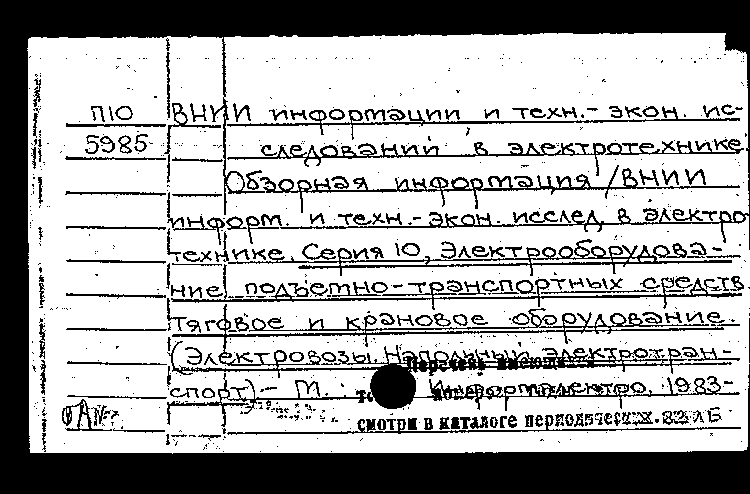 П10 ВНИИ информации и техн.-экон. ис-
5985 следований в электротехнике.
Обзорная информация /ВНИИ
информ. и техн.-экон. исслед. в электро
технике. Серия 10, Электрооборудова-
ние подъемно-транспортных средств
тяговое и крановое оборудование.
(Электровозы. Напольный электротран-
Перечень имеющихся
спорт) - М.: Информэлектро, 1983-
номеров
смотри в каталоге периодических